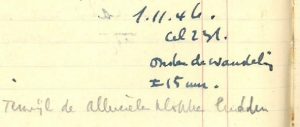 1.11.46.
Cel 231.
onder de wandeling
± 15 min.
Terwijl de Allerzielen klokken luidden